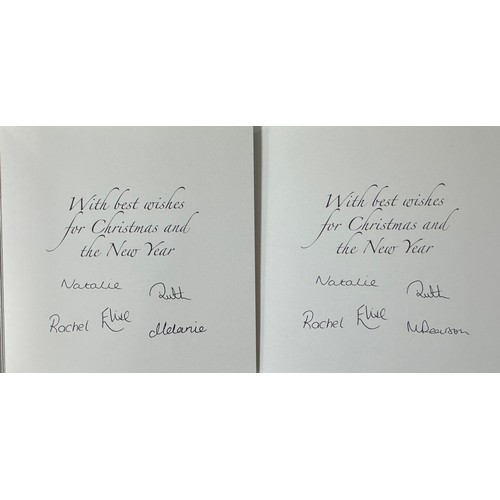 With best wishes
for Christmas and
the New Year
Natalie Ruth
Rachel Elise Melanie
With best wishes
for Christmas and
the New Year
Natalie Ruth
Rachel Elise M Pearson